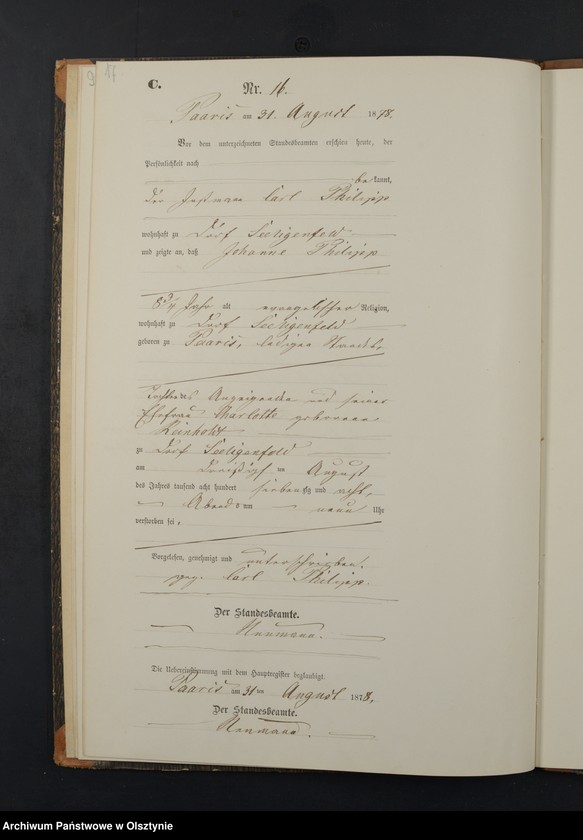 C.
Nr. 16.
Paaris am 31. August 1878.
Vor dem unterzeichneten Standesbeamten erschien heute, der
Persönlichkeit nach
bekannt,
der Instmann Carl Philipp
wohnhaft zu Dorf Seeligenfeld
und zeigte an, daß Johanne Philipp
8 3/4 Jahr alt evangelischer Religion,
wohnhaft zu Dorf Seeligenfeld
geboren zu Paaris, ledigen Standes,
Tochter des Anzeigenden und seiner
Ehefrau Charlotte geborenen
Reinholdt
zu Dorf Seeligenfeld
am dreißigsten August
des Jahres tausend acht hundert siebenzig und acht,
Abends um neun Uhr
verstorben sei,
Vorgelesen, genehmigt und unterschrieben.
gez. Carl Philipp.
Der Standesbeamte.
Neumann.
Die Uebereinstimmung mit dem Hauptregister beglaubigt.
Paaris am 31 ten August 1878.
Der Standesbeamte.
Neumann.
Archiwum Państwowe w Olsztynie